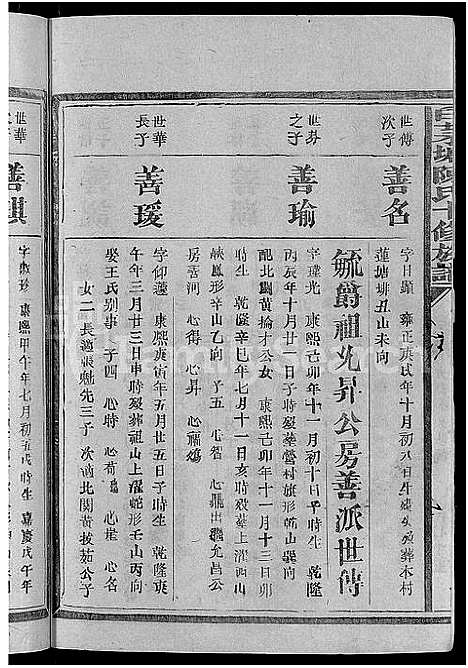 陳氏十修族譜
世傳
次子
善名
字日顯 雍正庚戌年十月初八日 葬木村
蓮塘坍丑山未向
毓爵祖允昇公房善派世傳
世芬
之子
善瑜
字瑋光 康熙己卯年十一月初十日時生 乾隆
丙辰年十月廿一日子時歿葬營村旗形乾山巽向
配北關黃掄才公女 康熙己卯年十一月十三日卯
時生 乾隆辛巳年七月十一日亥時歿葬上濯西山
峽鳳形辛山乙向 子五 心智 心鼎出繼允昌公
房雲河 心得 心昇 心福殤
世華
長子
善瑗
字仰蓮 康熙庚寅年五月廿五日子時生 乾隆庚
午年三月廿三日申時歿葬祖山上濯蛇形壬山丙向
娶王氏別事 子四 心時 心荷殤 心崔 心名
女二長適張魁先三子 次適北關黃拔茹公子
世華
次子
善琪
字淑珍 康熙甲午年七月初五戌時生 嘉慶戊午年